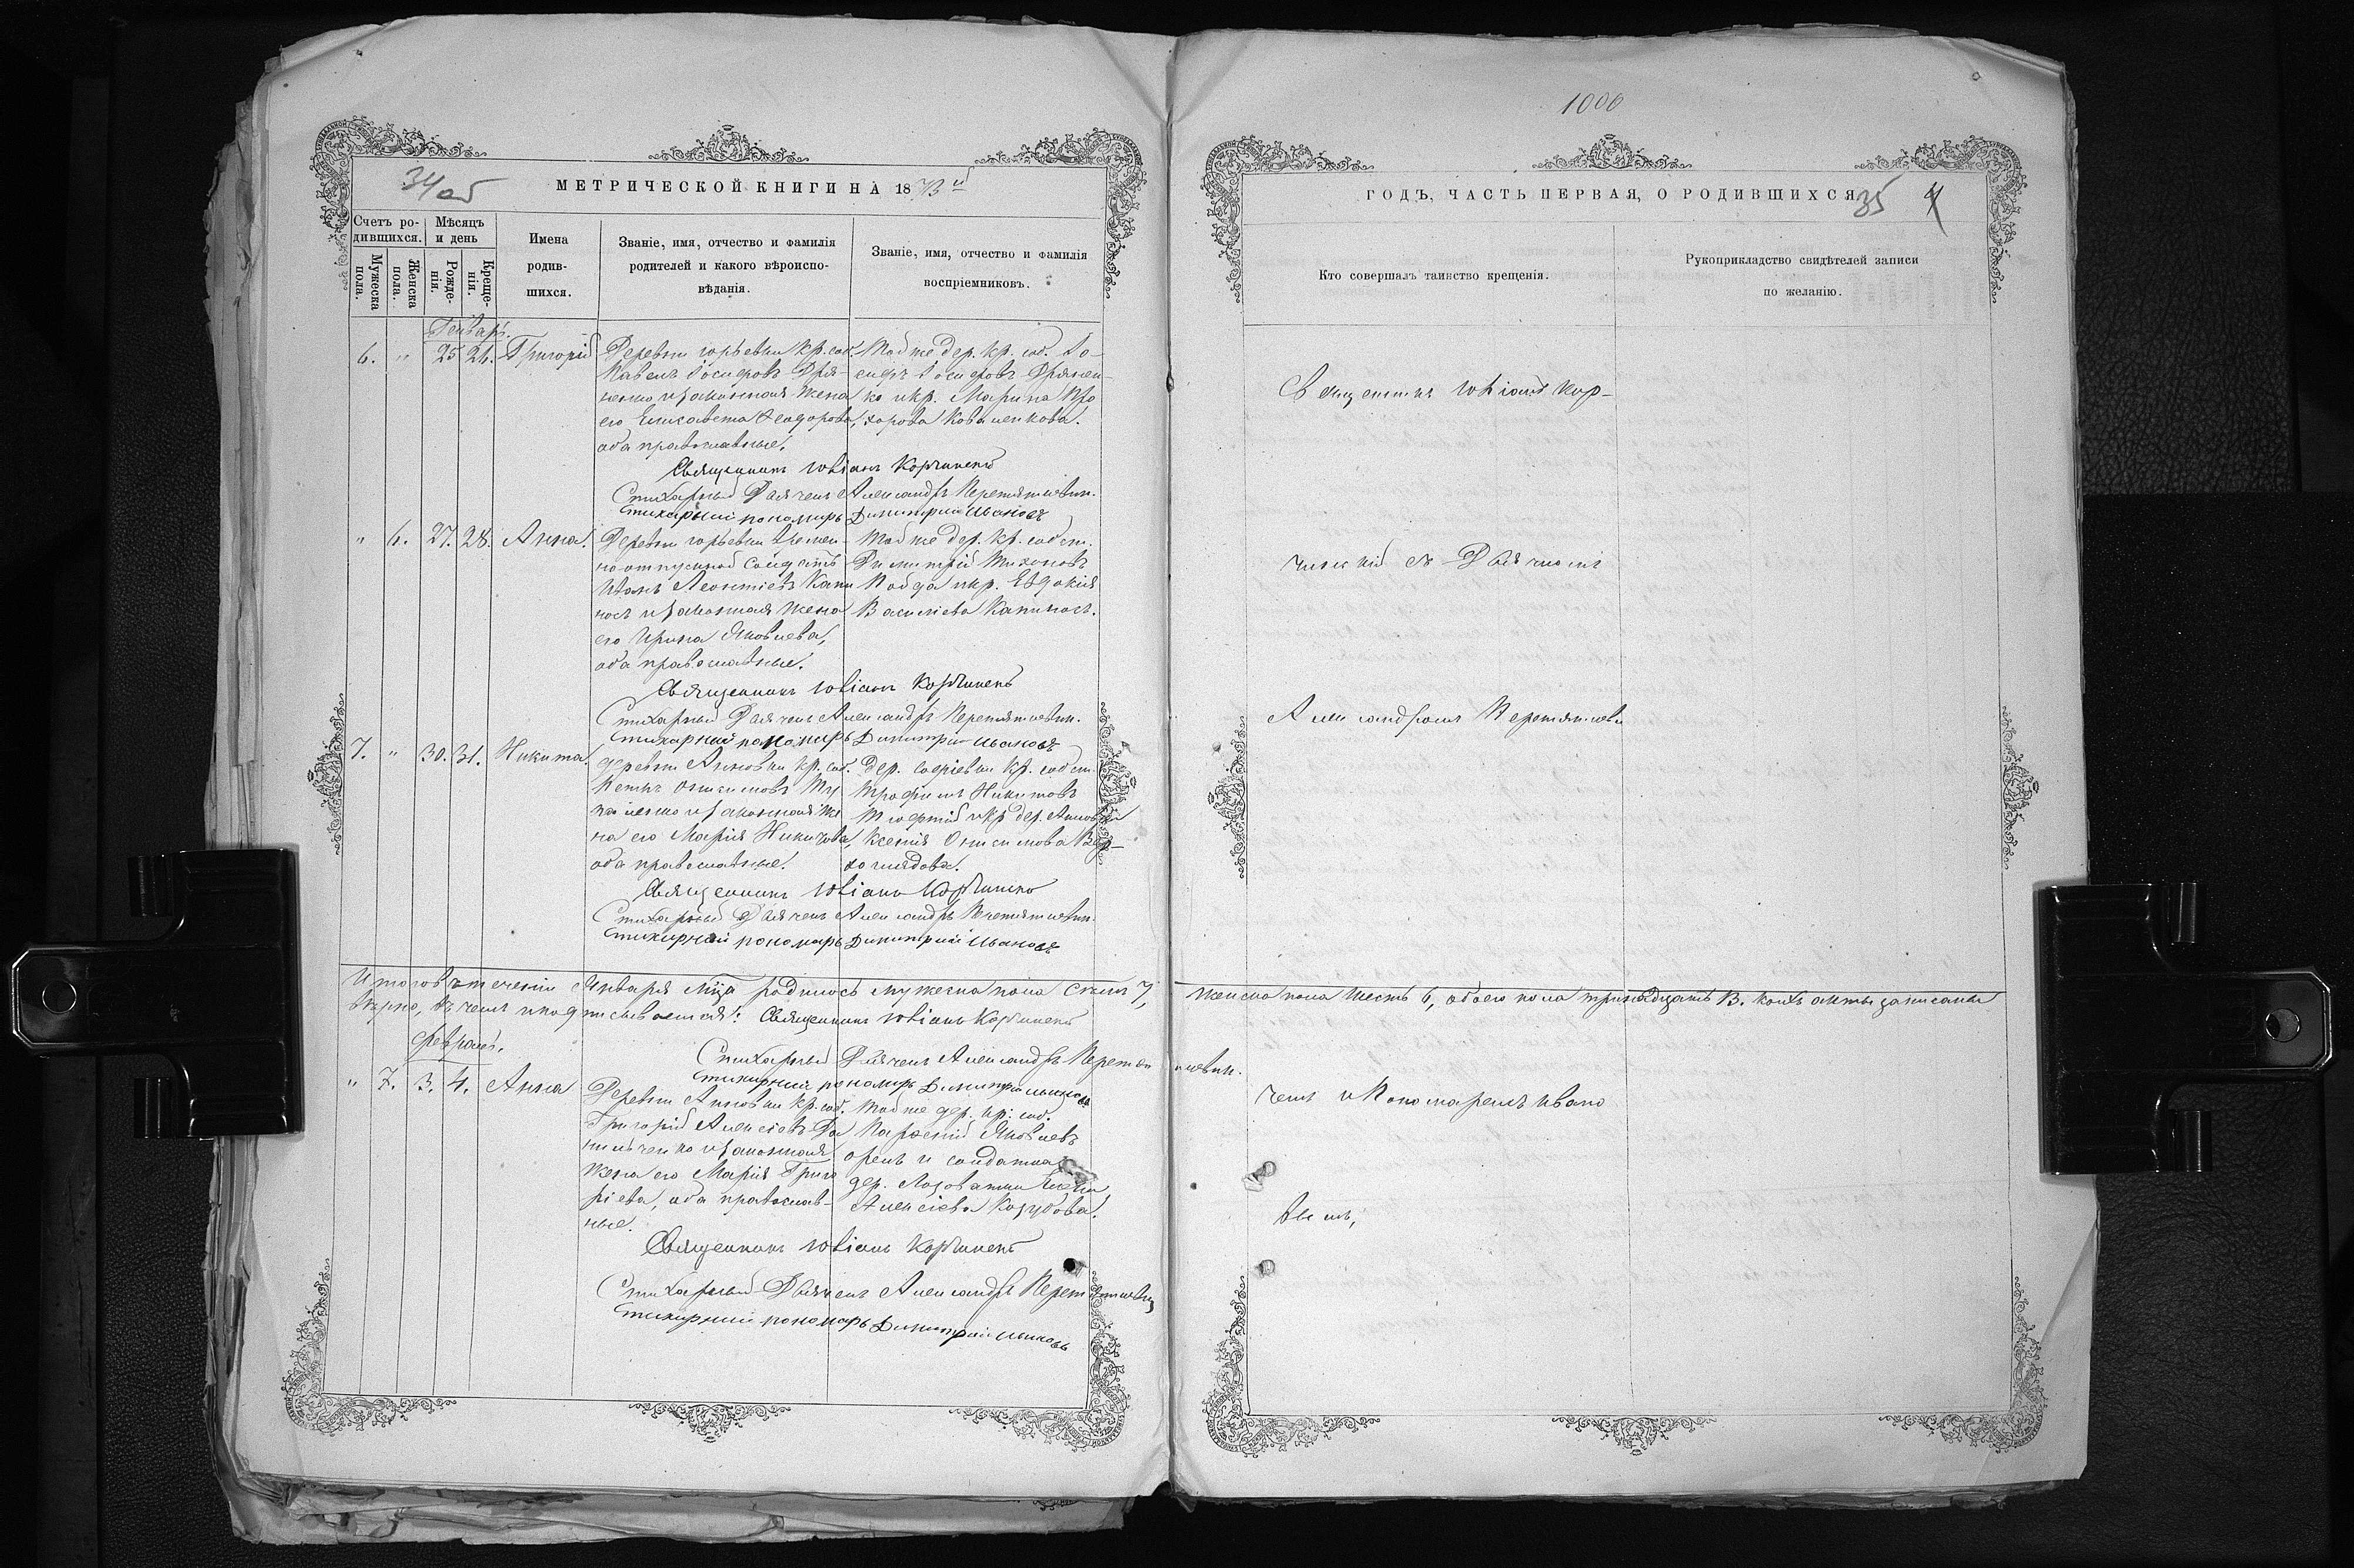 34 об
МЕТРИЧЕСКОЙ КНИГИ НА 1873 й
Счетъ ро-
дившихся.
Мужеска пола.
Женска пола.
Мѣсяцъ и день
Рожде-
нія.
Креще-
нія.
Имена
родив-
шихся.
Званіе, имя, отчество и фамилія
родителей и какого вѣроиспо-
вѣданія.
Званіе, имя, отчество и фамилія
воспріемниковъ.
Генварь.
6. " 25 26. Григорій
Деревни Юрьевки кр. соб.
Павелъ Іосифовъ
и законная жена
его Елисавета Ѳеодорова,
оба православные.
Той же дер. кр. соб. Іо-
сифъ Іосифовъ
ко и кр. Марина Про
хорова Коваленкова.
Священникъ Іовіанъ Корчинскій
Стихарный Дьячекъ Александръ Перетятковичъ.
Стихарный пономарь Димитрій Ивановъ
" 6. 27. 28. Анна.
Деревни Юрьевки времен-
но отпускной солдатъ
Иванъ Леонтіевъ Капи
носъ и законная жена
его Ирина Яковлева,
оба православные.
Той же дер. кр. собст.
Димитрій Тихоновъ
и кр. Евдокія
Василіева Капиносъ.
Священникъ Іовіанъ Корчинскій
Стихарный Дьячекъ Александръ Перетятковичъ.
Стихарный пономарь Димитрій Ивановъ
7. " 30. 31. Никита.
деревни Анновки кр. соб.
Петръ Онисимовъ
и законная же
на его Марія
оба православные.
Дер. Софіевки кр. собст.
Трофимъ Никитовъ
и кр дер. Анновки
Ксенія Онисимова Вер-
хоглядова.
Священникъ Іовіанъ Корчинскій
Стихарный Дьячекъ Александръ Перетятковичъ.
Стихарный пономарь Димитрій Ивановъ
Итого въ теченіи Января мца родилось мужеска пола семь 7,
вѣрно, въ чемъ и подписываемся: Священникъ Іовіанъ Корчинскій
Февраль.
Стихарный Дьячекъ Александръ Перетятковичъ.
Стихарный пономарь Димитрій Ивановъ
" 7. 3. 4. Анна
Деревни Анновки кр. соб.
Григорій Алексіевъ Да
нильченко и законная
жена его Марія Григо
ріева, оба православ-
ные.
Той же дер. кр. соб.
Парѳеній Яковлевъ
орелъ и солдатка
дер. Лозоватки
Алексіева Козубова.
Священникъ Іовіанъ Корчинскій
Стихарный Дьячекъ Александръ Перетятковичъ
Стихарный пономарь Димитрій Ивановъ
1006
ГОДЪ, ЧАСТЬ ПЕРВАЯ, О РОДИВШИХСЯ
35
Кто совершалъ таинство крещенія.
Рукоприкладство свидѣтелей записи
по желанію.
Священникъ Іовіанъ Кор-
чинскій съ Дьячкомъ
Александромъ Перетяткови
женска пола шесть 6, обоего пола тринадцать 13. коихъ акты записаны
чемъ и Пономаремъ Ивано
вымъ,